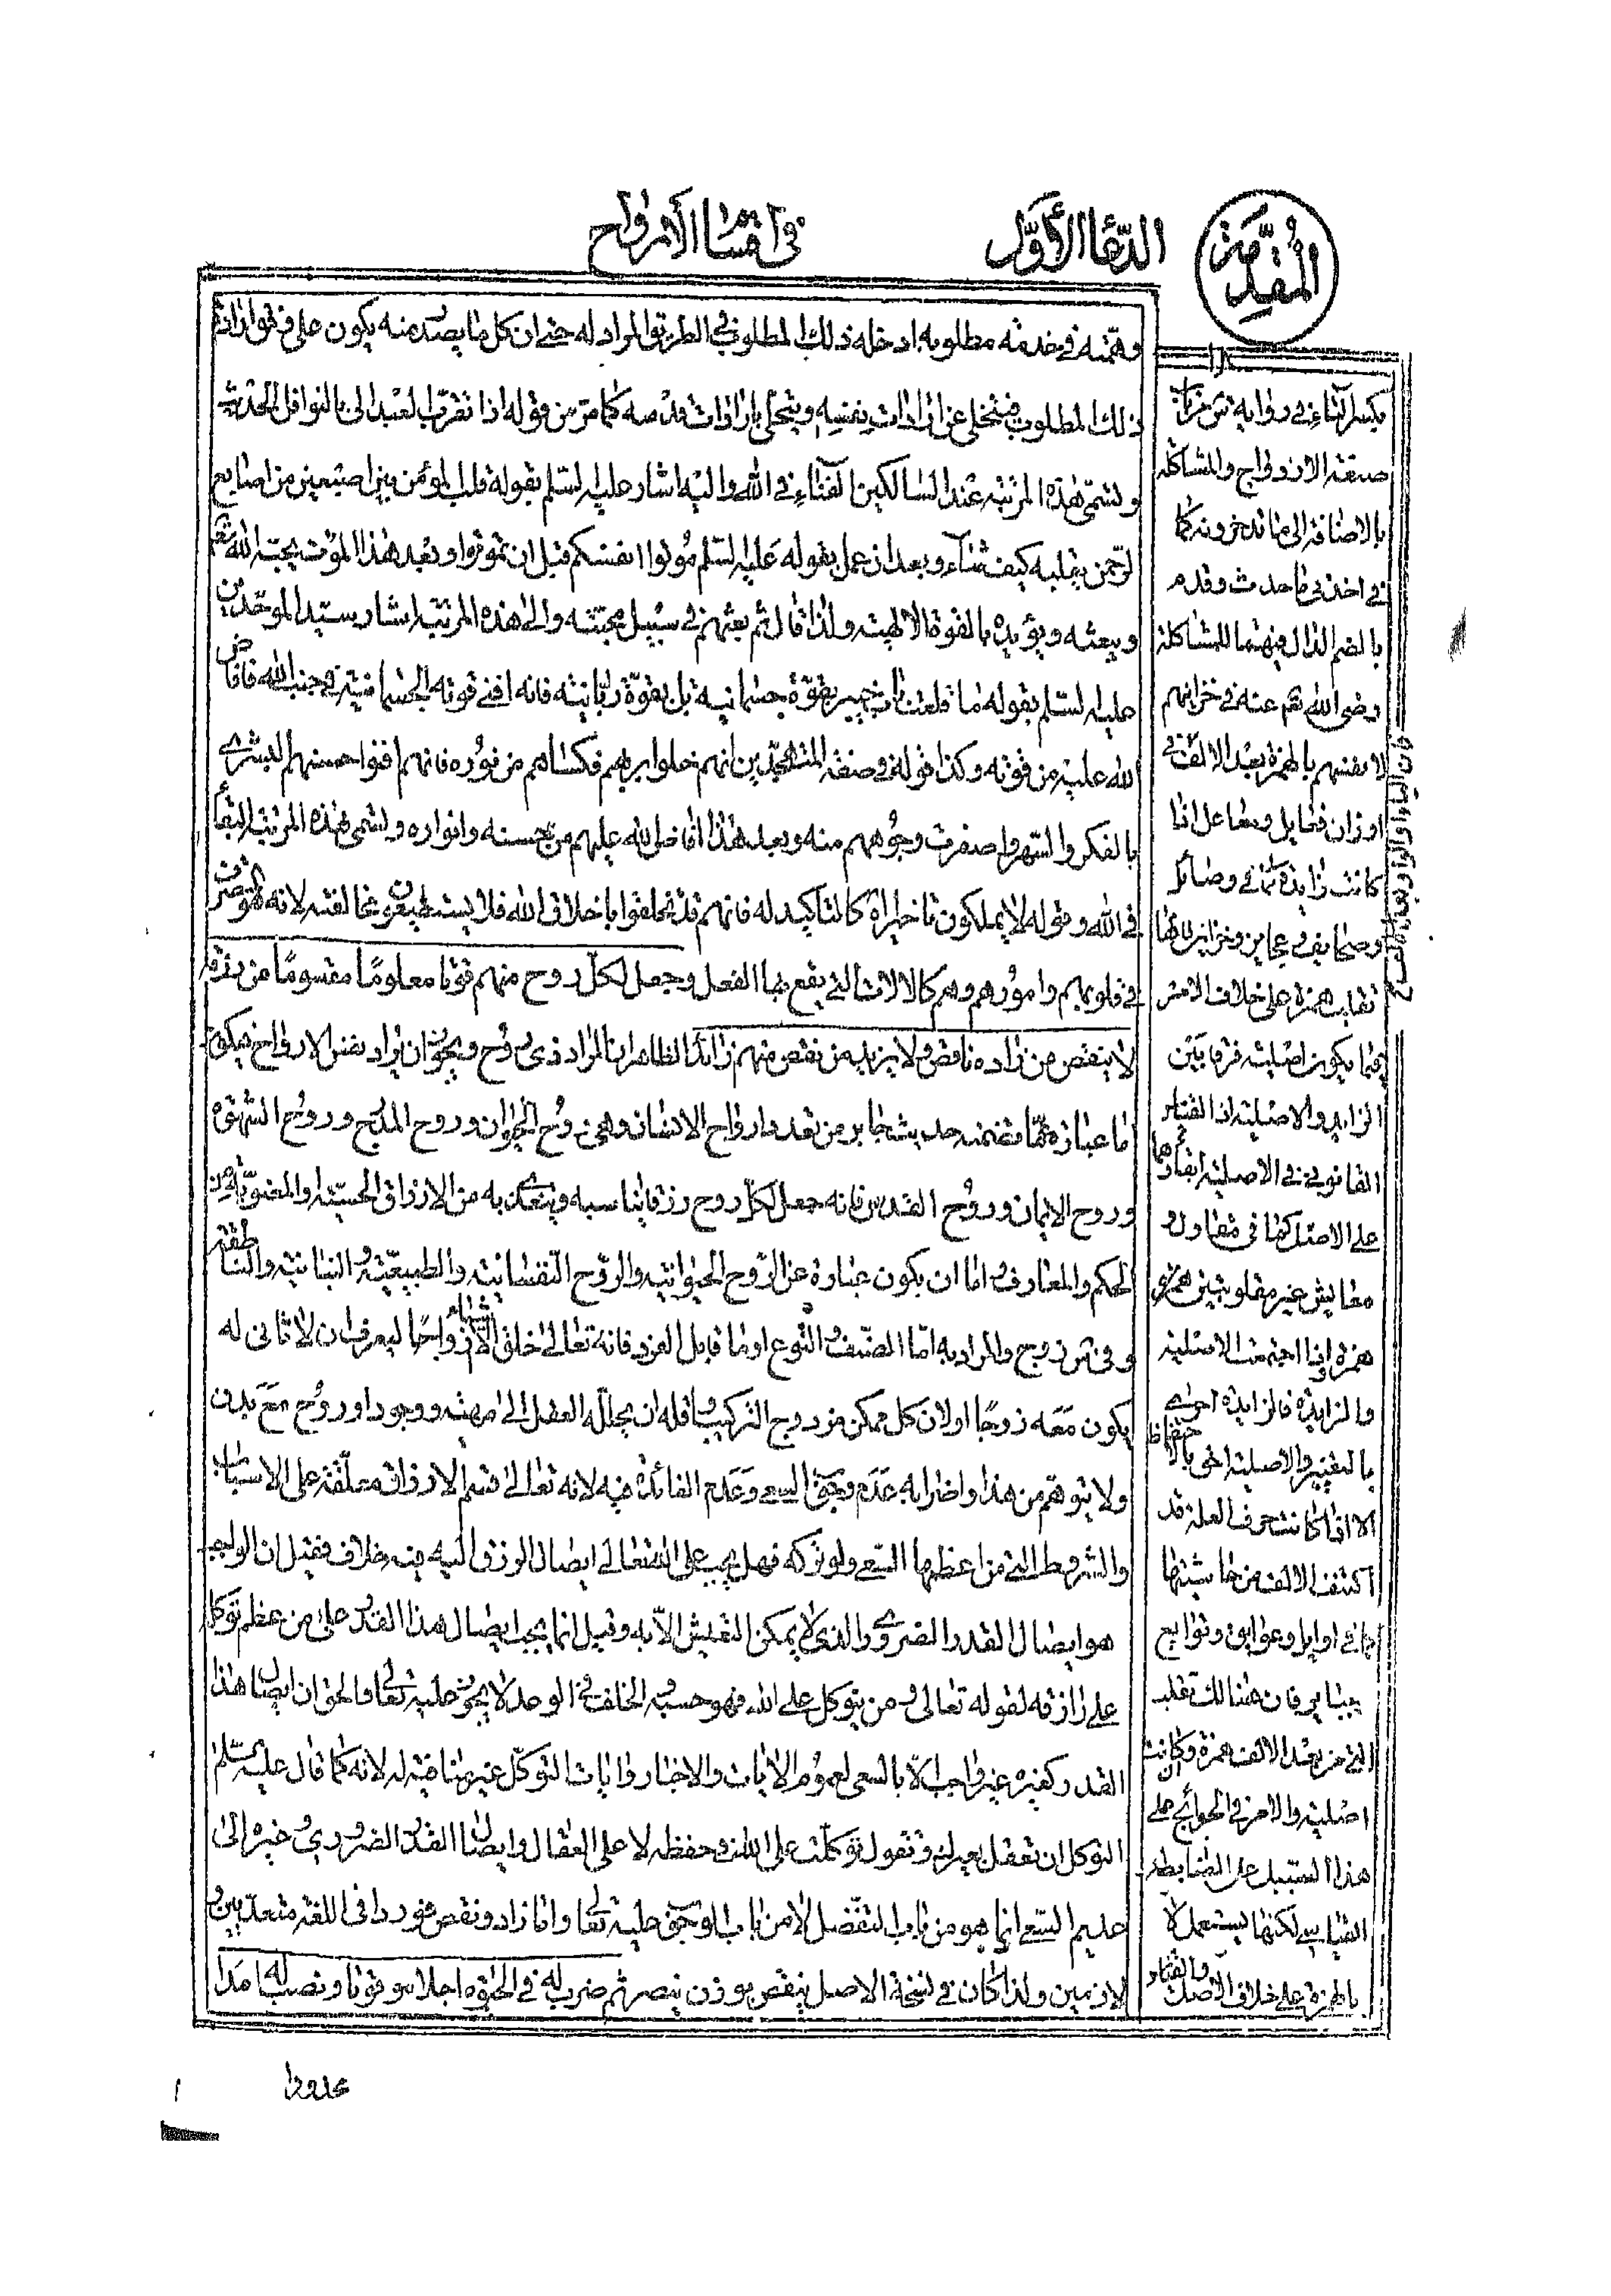 المقدمة
الدعاء الأول
في اقسام الأرواح
وهمته في خدمة مطلوبه ادخله ذلك المطلوب في الطريق المراد له حتى ان كل ما يصدر منه يكون على وفق ارادة
ذلك المطلوب فيتخلى عن ارادات نفسه ويتحلى بارادات قدسه كما مر من قوله اذا تقرب العبد الى بالنوافل الحديث
وتسمى هذه المرتبة عند السالكين الفناء في الله واليه اشار عليه السلم بقوله قلب المؤمن بين اصبعين من اصابع
الرحمن يقلبه كيف شاء وبعد ان عمل بقوله عليه السلم موتوا انفسكم قبل ان تموتوا وبعد هذا الموت يحبه الله
ويبعثه ويؤيده بالقوة الالهية ولذا قال ثم بعثهم في سبيل محبته والى هذه المرتبة اشار سيد الموحدين
عليه السلم بقوله ما قلعت باب خيبر بقوة جسمانية بل بقوة ربانية فانه افنى قوته الجسمانية في جنب الله فافاض
الله عليه من قوته وكذا قوله في صفة المتهجدين انهم خلوا بربهم فكساهم من نوره فانهم افنوا حسنهم البشرى
بالفكر والسهر واصفرت وجوههم منه وبعد هذا افاض الله عليهم من حسنه وانواره وتسمى هذه المرتبة البقاء
في الله وقوله لا يملكون تاخيرا كالتاكيد له فانهم قد تخلقوا باخلاق الله فلا يستطيعون مخالفته لانه هو المتصرف
في قلوبهم وامورهم وهم كالالات التي يقع بها الفعل وجعل لكل روح منهم قوتا معلوما مقسوما من رزقه
لا ينقص من زاده ناقص ولا يزيد من نقص منهم زائد الظاهر ان المراد ذي روح ويجوز ان يراد نفس الارواح فيكون
اما عبارة عما تضمنه حديث جابر من تعدد ارواح الانسان وهي روح الحيوان وروح المدرج وروح الشهوة
وروح الايمان وروح القدس فانه جعل لكل روح رزقا يناسبه ويتغذى به من الارزاق الحسية والمعنوية من
الحكم والمعارف اما ان يكون عبارة عن الروح الحيوانية والروح النفسانية والطبيعية والنباتية والناطقة
وفي س زوج والمراد به اما الصنف والنوع او ما قابل الفرد فانه تعالى خلق الاشياء ازواجا ليعرف ان لا ثاني له
يكون معه زوجا او لان كل ممكن زوج التركيب واقله ان يحلله العقل الى مهية ووجود او روح مع بدن
ولا يتوهم من هذا واضرابه عدم وجوب السعي وعدم الفائدة فيه لانه تعالى قسم الارزاق معلقة على الاسباب
والشروط التي من اعظمها السعي ولو تركه فهل يجب على الله تعالى ايصال الرزق اليه فيه خلاف فقيل ان الواجب
هو ايصال القدر الضروري والذي لا يمكن التعيش الا به وقيل انما يجب ايصال هذا القدر على من عظم توكله
على رازقه لقوله تعالى ومن يتوكل على الله فهو حسبه والخلف في الوعد لا يجوز عليه تعالى والحق ان ايصال هذا
القدر كغيره غير واجب الا بالسعي لعموم الايات والاخبار وايات التوكل غير منافية له لانه كما قال عليه السلم
التوكل ان تعقل بعيرك وتقول توكلت على الله في حفظه لا على العقال وايصال القدر الضروري وغيره الى
عليم السعي انما هو من باب التفضل لا من باب الوجوب عليه تعالى واما زاد ونقص فوردا في اللغة متعديين و
لازمين ولذا كان في نسخة الاصل ينقص بوزن ينصر ثم ضرب له في الحيوة اجلا موقوتا ونصب له امدا
محدودا
بكسر التاء في رواية س من باب
صنعة الازدواج والمشاكلة
بالاضافة الى ما تدخرونه كما
في اخذني ما حدث وقدم
بالضم الدال فيهما للمشاكلة
رضى الله عنه في خزائنهم
لا نفسهم بالهمزة بعد الالف في
اوزان فعايل ومفاعل اذا
كانت زايدة كما في رسائل
وصحايف في عجايز وخزاين فانها
تقلب همزة على خلاف الامر
فيما يكون اصلية فرقا بين
الزايد والاصلية اذ القياس
القانوني في الاصلية ابقاؤهما
على الاصل كما في مقاول و
معايش غير مقلوبتين همزة
همزة اذا اجتمعت الاصلية
والزايدة فالزايدة احرى
بالتغيير والاصلية احق بالاحتفاظ
الا اذا كانت حرف العلة قد
اكتنف الالف من حاشيتها
كما في اوايل وعوايق وتوابع
فان هنالك تقلب
التي من بعد الالف همزة وان كانت
اصلية والامر في الحوائج على
هذا السبيل على الضابطة
القياسي لكنها يستعمل
بالهمزة على خلاف الاصل والقياس